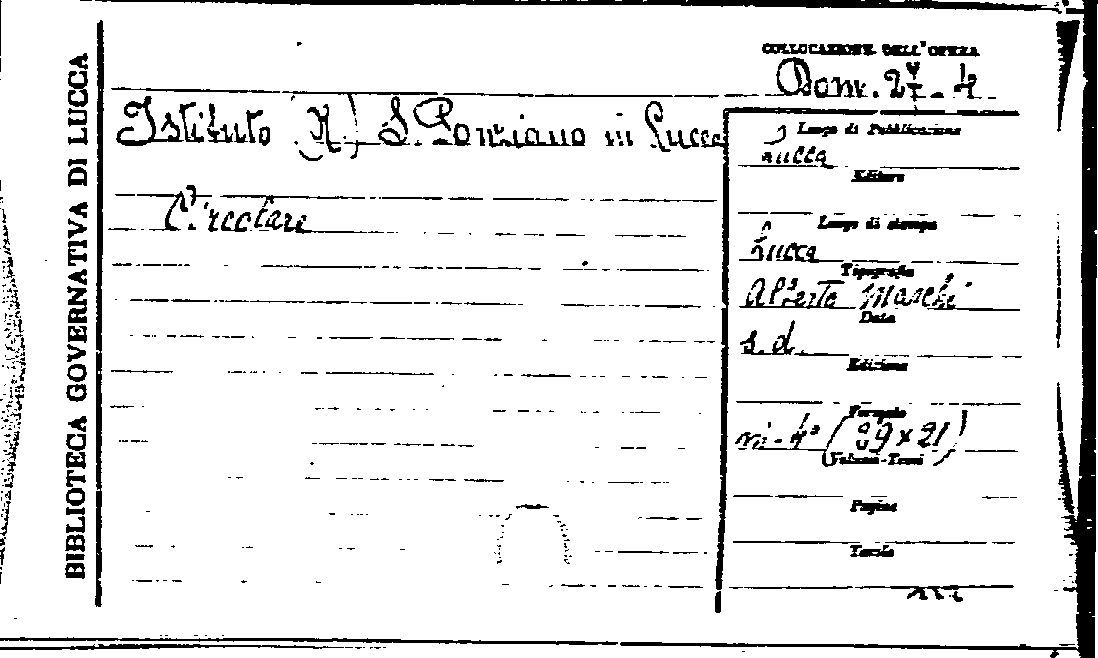 BIBLIOTECA GOVERNATIVA DI LUCCA
COLLOCAZIONE DELL'OPERA
Istituto (R.) S. Ponziano in Lucca
Circolare
Luogo di Pubblicazione
Lucca
Editore
Luogo di stampa
Lucca
Tipografia
Alberto Marchi
Data
s. d.
Edizione
Formato
in-4° ( x 21)
Volumi-Tomi
Pagine
Tavole